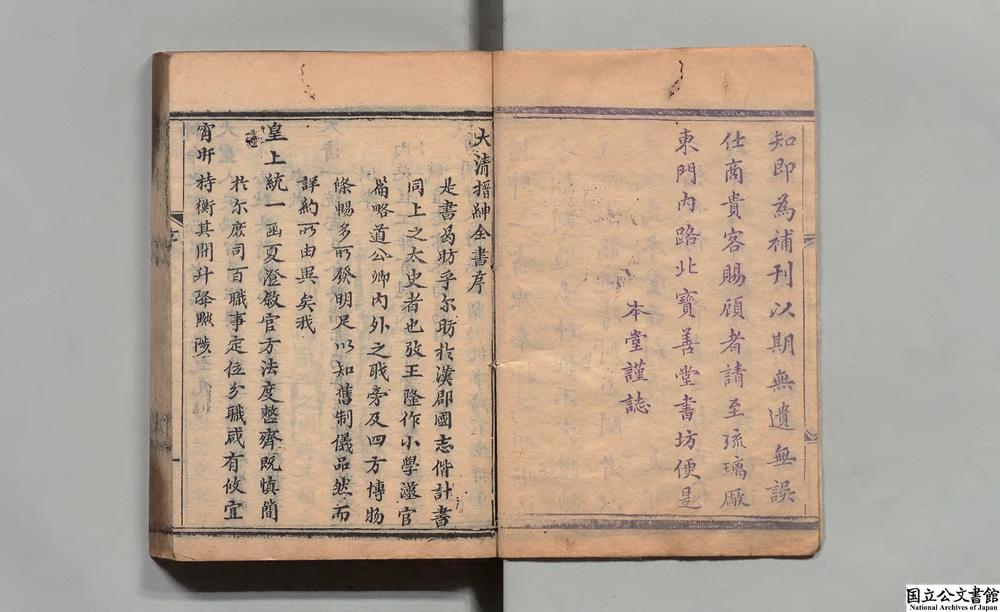 知即為補刊以期無遺無誤
仕商貴客賜顧者請至琉璃厰
東門內路北寶善堂書坊便是
本堂謹誌
大清搢紳全書序
是書曷昉乎尔昉於漢郡國志偕計書
同上之太史者也攷王隆作小學漢官
篇略道公卿內外之職旁及四方博物
條暢多所發明足以知舊制儀品然而
詳約所由異矣我
皇上統一函夏澄敘官方法度整齊既慎簡
於尔庶司百職事定位分職咸有攸宜
宵旰持衡其間升降黜陟
序
一
国立公文書館
National Archives of Japan